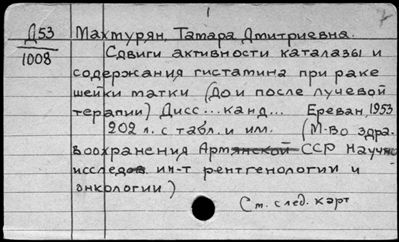 1
Д53 Махтурян, Тамара Дмитриевна.
1008 Сдвиги активности каталазы и
содержания гистамина при раке
шейки матки (До и после лучевой
терапии) Дисс... канд... Ереван, 1953
202 л. с табл. и им. (М-во здра-
воохранения Армянской ССР Научно
исследов ин-т рентгенологии и
онкологии)
См. след. карт